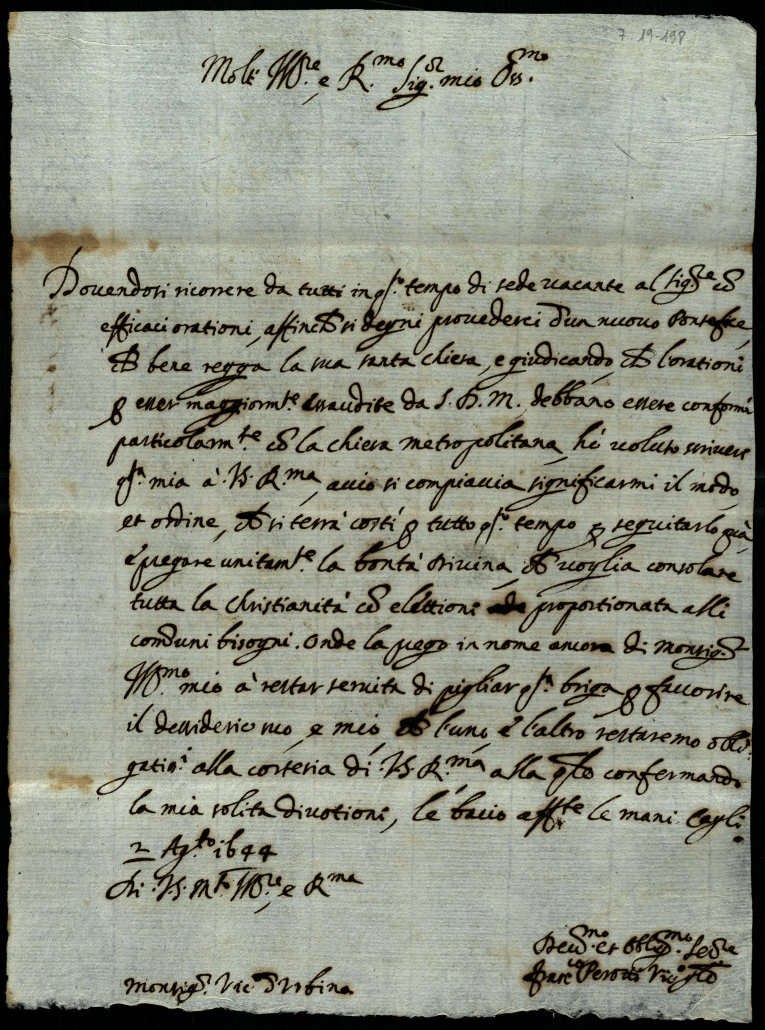 7 19-198
Molt' Ill.re e R.mo Sig.or mio Oss.mo
Dovendosi ricorrere da tutti in q.sto tempo di sede vacante al Sig.re cō
efficaci orationi, affinchè si degni provederci d'un nuovo Pontefice,
chè bene regga la sua santa chiesa, e giudicando, chè l'orationi
p esser maggiorm.te essaudite da S. D. M. debbano essere conformi
particolarm.te cō la chiesa metropolitana, hò voluto scrivere
q.sta mia à V.S. R.ma, acciò si compiaccia significarmi il modo,
et ordine, chè si terrà costì p tutto q.sto tempo p seguitarlo quà,
è pregare unitam.te la bontà Divina, chè voglia consolare
tutta la Christianità cō elettione proportionata alli
communi bisogni. Onde la prego in nome ancora di Monsig.r
Ill.mo mio à restar servita di pigliar q.sta briga p favorire
il desiderio suo, e mio, chè l'uno è l'altro restaremo obli
gatiss.i alla cortesia di V.S. R.ma alla q.le confermando
la mia solita divotione, le bacio aff.te le mani Cagli
2 Ag.to 1644
Di V.S. M.to Ill.re, e R.ma
Dev.mo et Oblig.mo Se.re
Perotti Vic.o g.le
Monsig.r Vic.o d'Urbino